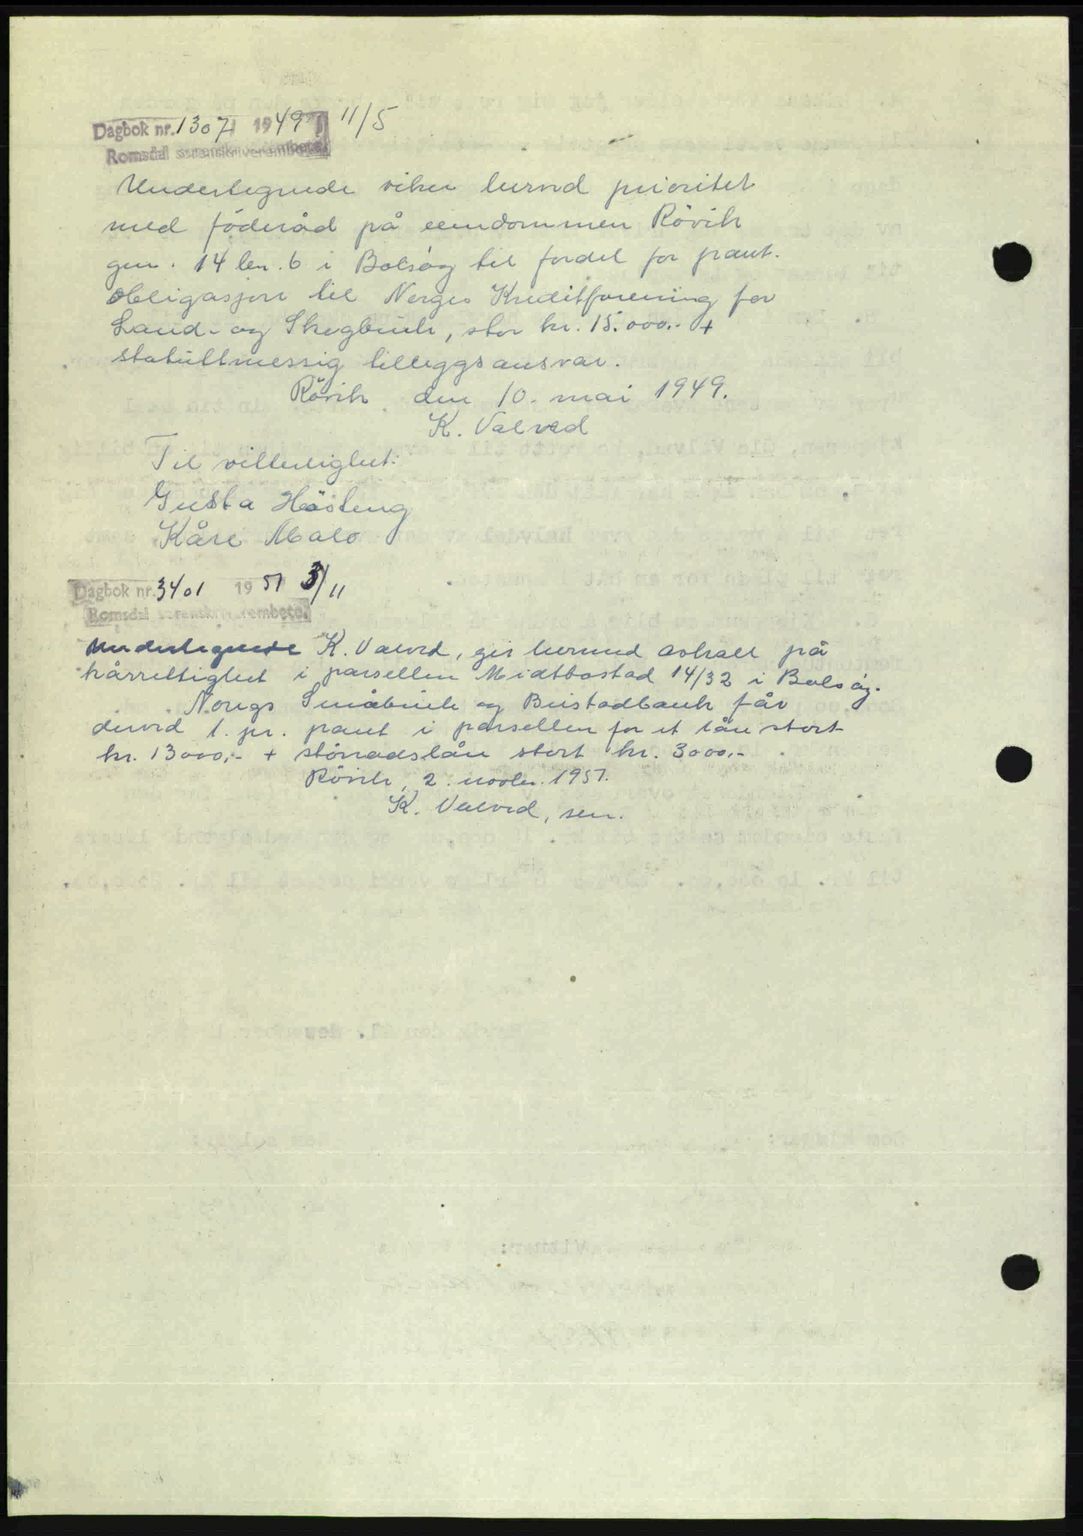 Dagbok nr. 1307 1949 11/5
Romsdal sorenskriverembete
Undertegnede viker herved prioritet
med föderåd på eiendommen Rövik
gnr. 14 bnr. 6 i Bolsöy til fordel for pant-
obligasjon til Norges Kreditforening for
Land- og Skogbruk, stor kr. 15.000.- +
statuttmessig tilleggsansvar.
Rövik den 10. mai 1949.
K. Valved
Til vitterlighet:
Gusta Hästeng
Kåre Malo
Dagbok nr. 3401 1951 3/11
Romsdal sorenskriverembete.
Undertegnede K. Valved, gir herved avkall på
kårrettighet i parsellen Midtbostad 14/32 i Bolsöy.
Noregs Småbruk og Bustadbank får
derved 1. pr. pant i parsellen for et lån stort
kr. 13000,- + stönadslån stort kr. 3000,-
Rövik, 2. novbr. 1951.
K. Valved, sen.